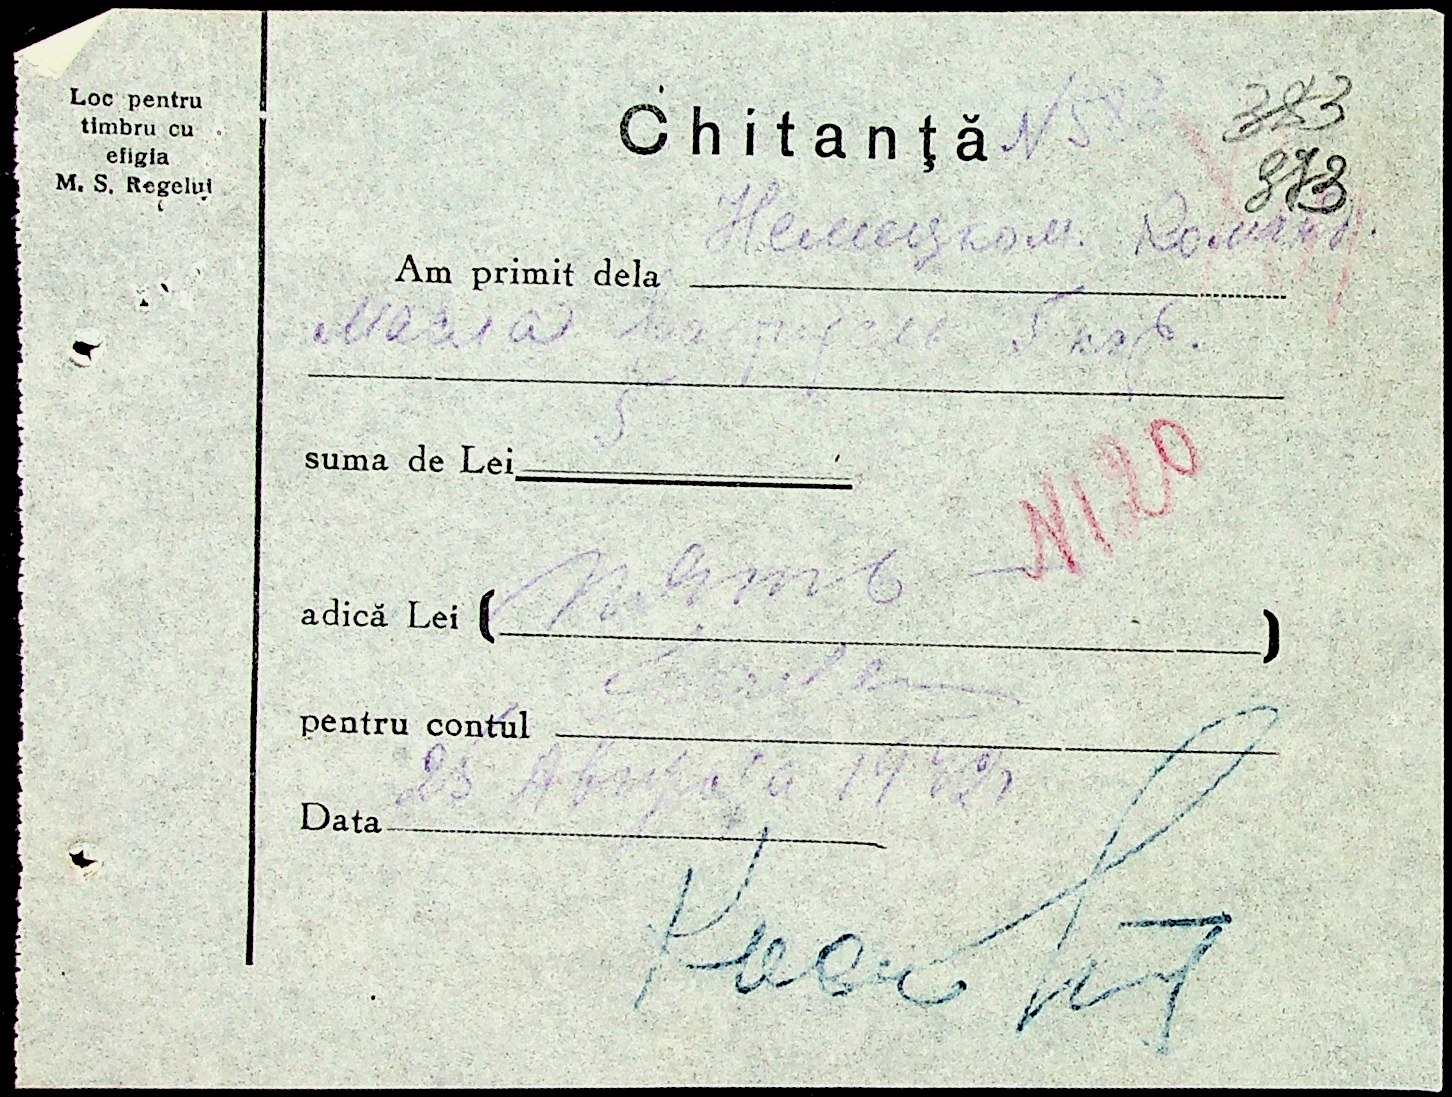 Loc pentru
timbru cu
efigia
M. S. Regelui
Chitanţă
N 583
323
873
Am primit dela Немецком. Команд.
масла
suma de Lei 5
N120
adică Lei (пять)
pentru contul
Data 25 Августа 1942